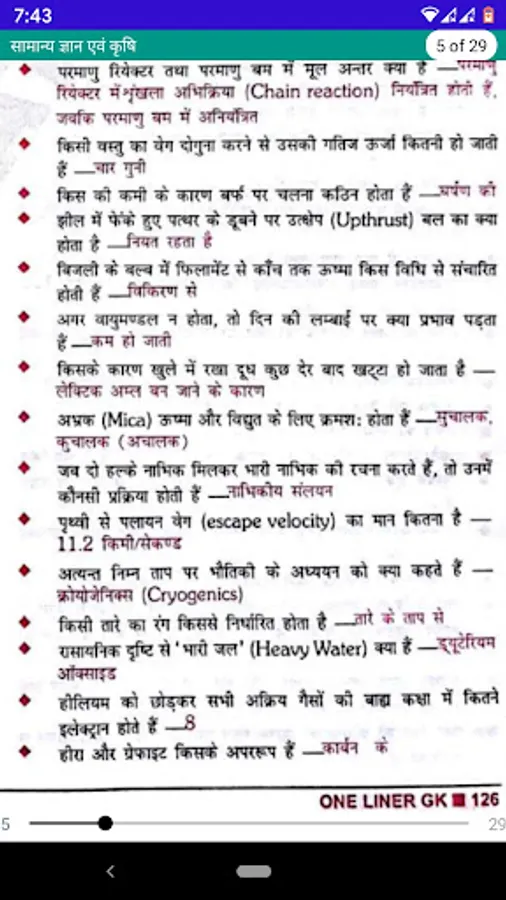 7:43
सामान्य ज्ञान एवं कृषि
5 of 29
परमाणु रियेक्टर तथा परमाणु बम में मूल अन्तर क्या है —परमाणु
रियेक्टर में शृंखला अभिक्रिया (Chain reaction) नियंत्रित होती हैं,
जबकि परमाणु बम में अनियंत्रित
किसी वस्तु का वेग दोगुना करने से उसकी गतिज ऊर्जा कितनी हो जाती
हैं —चार गुनी
किस की कमी के कारण बर्फ पर चलना कठिन होता हैं —घर्षण की
झील में फेंके हुए पत्थर के डूबने पर उत्क्षेप (Upthrust) बल का क्या
होता है —नियत रहता है
बिजली के बल्ब में फिलामेंट से काँच तक ऊष्मा किस विधि से संचारित
होती हैं —विकिरण से
अगर वायुमण्डल न होता, तो दिन की लम्बाई पर क्या प्रभाव पड़ता
हैं —कम हो जाती
किसके कारण खुले में रखा दूध कुछ देर बाद खट्टा हो जाता है —
लेक्टिक अम्ल बन जाने के कारण
अभ्रक (Mica) ऊष्मा और विद्युत के लिए क्रमश: होता हैं —सुचालक,
कुचालक (अचालक)
जब दो हल्के नाभिक मिलकर भारी नाभिक की रचना करते हैं, तो उनमें
कौनसी प्रक्रिया होती हैं —नाभिकीय संलयन
पृथ्वी से पलायन वेग (escape velocity) का मान कितना है —
11.2 किमी/सेकण्ड
अत्यन्त निम्न ताप पर भौतिकी के अध्ययन को क्या कहते हैं —
क्रोयोजेनिक्स (Cryogenics)
किसी तारे का रंग किससे निर्धारित होता है —तारे के ताप से
रासायनिक दृष्टि से 'भारी जल' (Heavy Water) क्या हैं —ड्यूटेरियम
ऑक्साइड
हीलियम को छोड़कर सभी अक्रिय गैसों की बाह्य कक्षा में कितने
इलेक्ट्रान होते हैं —8
हीरा और ग्रेफाइट किसके अपररूप हैं —कार्बन के
ONE LINER GK ■ 126
5
29